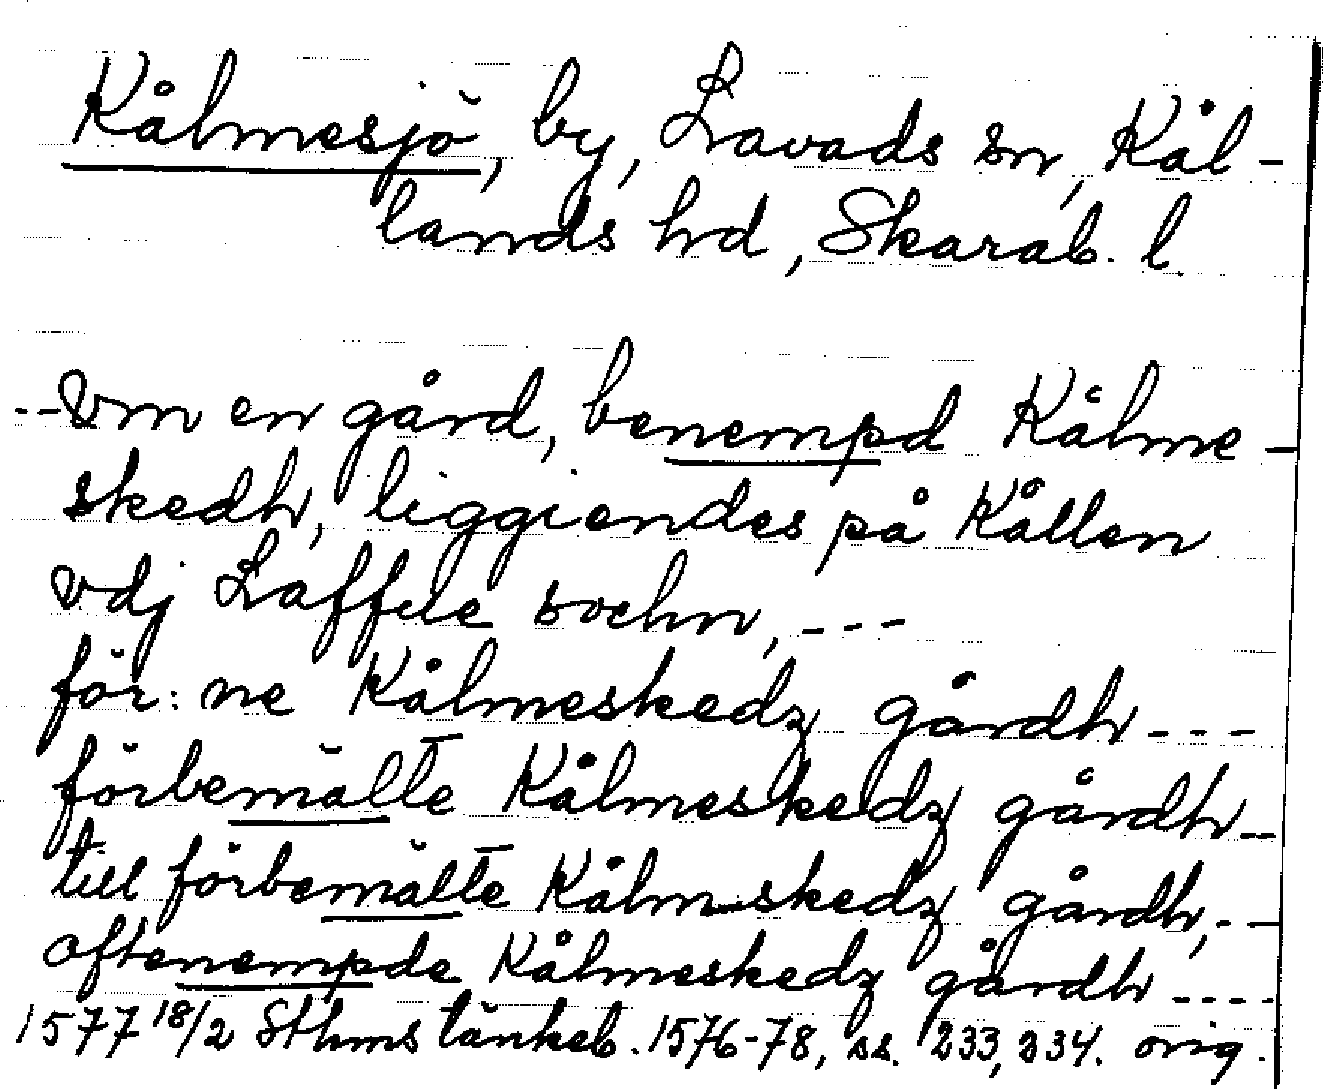 Kålmesjö, by, Lavads sn, Kål-
lands hd, Skarab. l.
--Vm en gård, benempd Kålme-
skedh, liggiendes på Kållen
vdj Laffele sochn, ---
för: ne Kålmeskedz gårdh ---
förbemälte Kålmeskedz gårdh--
till förbemälte Kålmskedz gårdh,--
oftenempde Kålmeskedz gårdh ----
1577 18/2 Sthms tänkeb. 1576-78, ss. 233, 234. orig.